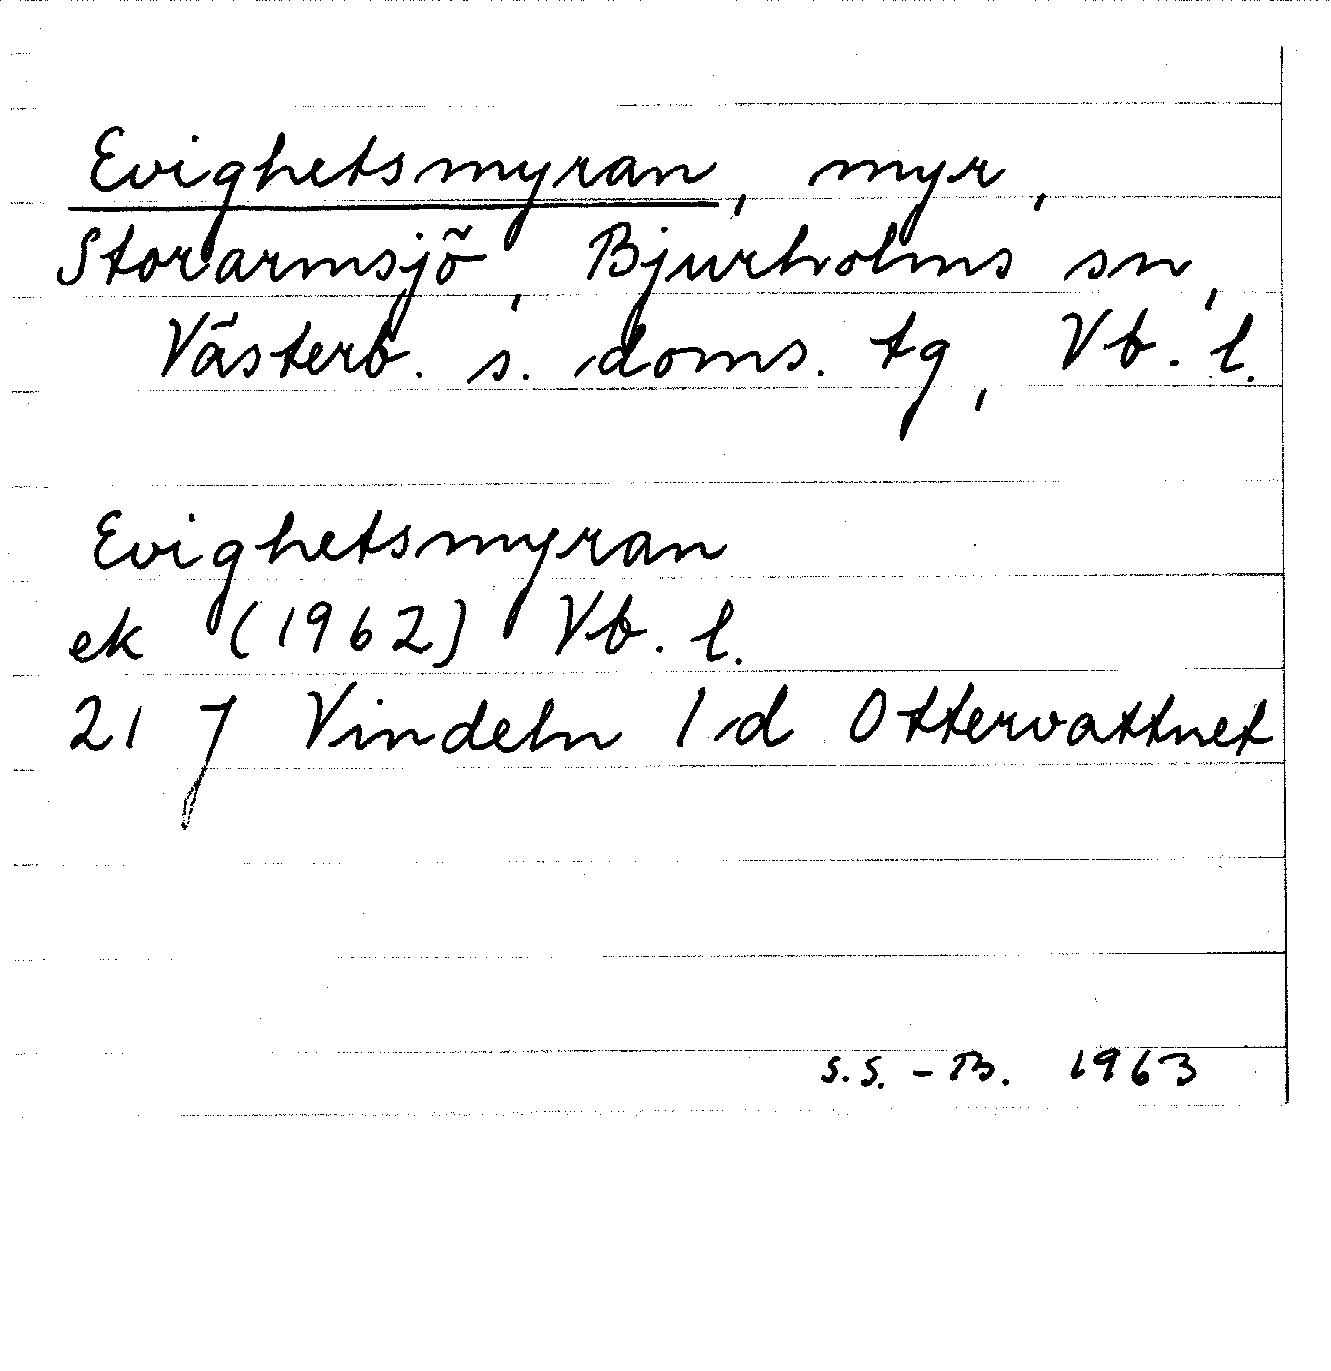 Evighetsmyran, myr,
Storarmsjö, Bjurholms sn,
Västerb. s. doms. tg, Vb. l.
Evighetsmyran
ek (1962) Vb. l.
21 J Vindeln 1 d Ottervattnet
S.S. - B. 1963